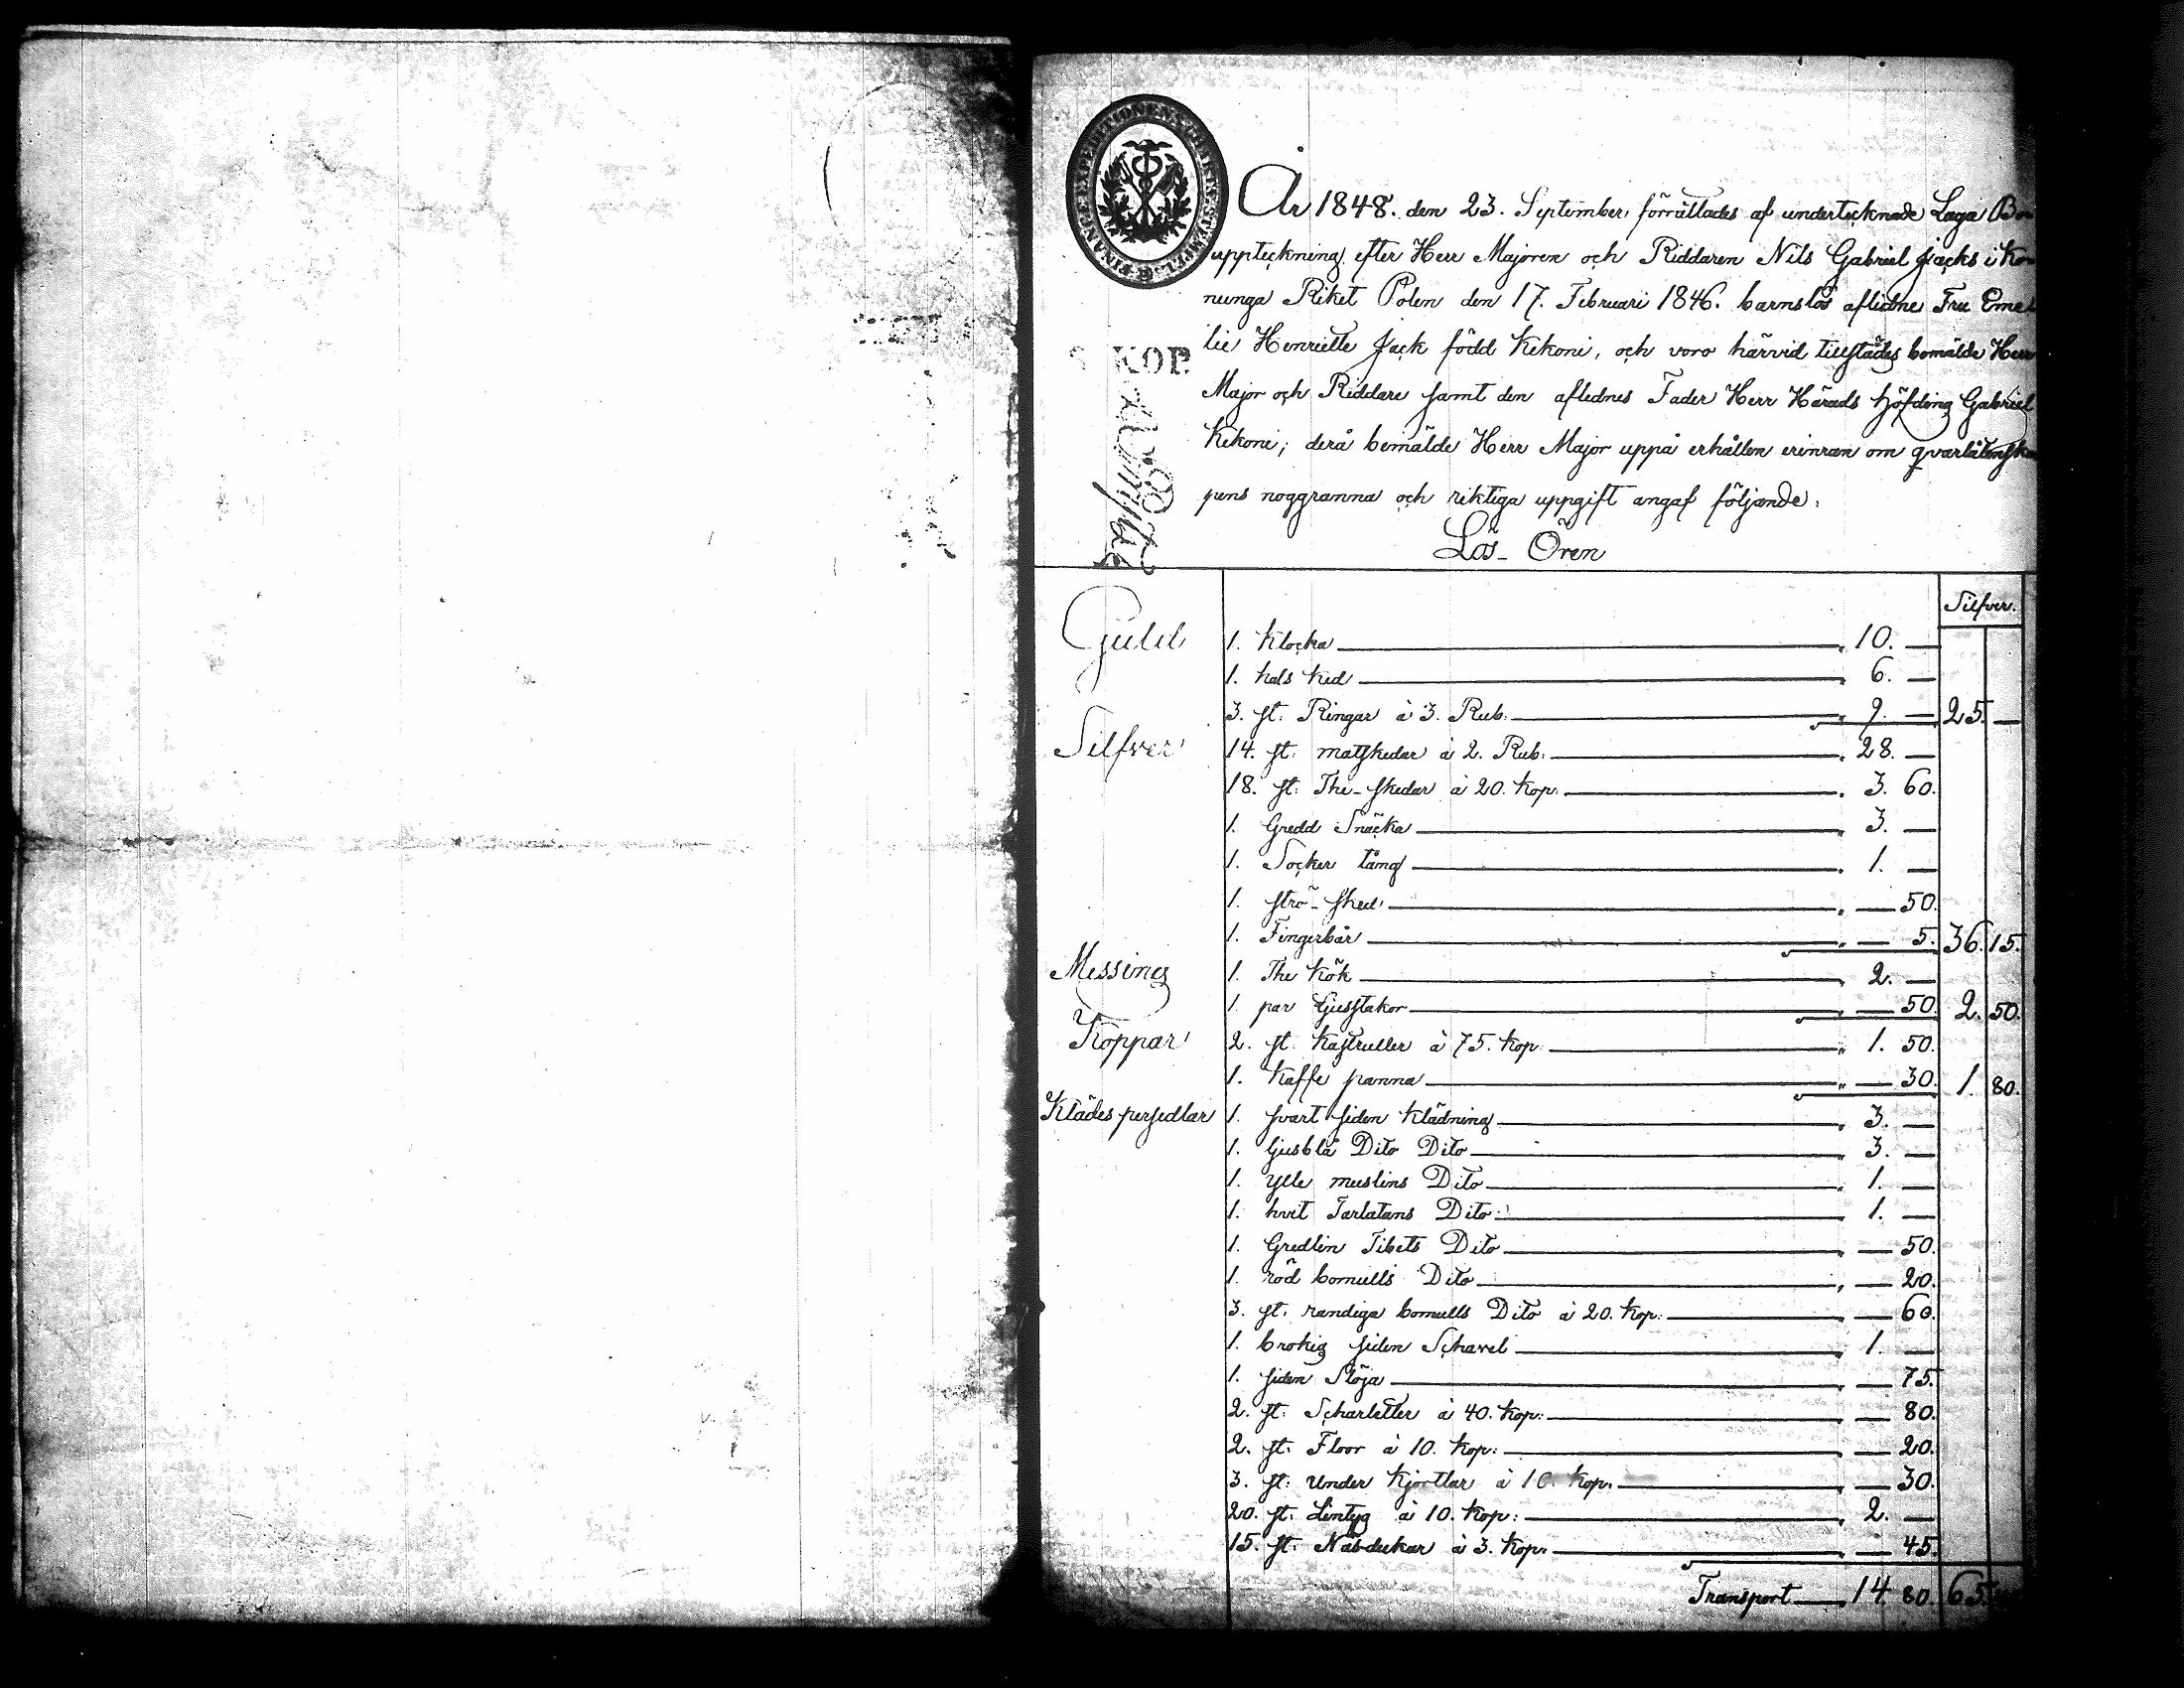 FINANCE EXPEDITIONENS CHARTÆ STÆMPEL
År 1848. den 23. September, förrättades af undertecknade Laga Bo
uppteckning efter Herr Majoren och Riddaren Nils Gabriel Jacks i Ko
nunga Riket Polen den 17. Februari 1846. barnslös aflidne Fru Eme
lie Henriette Jack född Kekoni, och voro härvid tillstädes bemälde Herr
KOP.
Major och Riddare samt den aflednes Fader Herr Härads höfding Gabriel
Kekoni; derå bemälde Herr Major uppå erhållen erinran om qvarlåtenska
pens noggranna och riktiga uppgift angaf följande:
Lös-Ören
Silfver.
Guld 1. Klocka 10. —
1. hals ked 6. —
3. st. Ringar à 3. Rub. 9. — 25. —
Silfver 14. st. matskedar à 2. Rub: 28. —
18. st: The-skedar à 20. Kop. 3. 60.
1. Gredd Snäcka 3. —
1. Socker tång 1. —
1. strö-sked — 50.
1. Fingerbår — 5. 36. 15.
Messing 1. The Kök 2. —
1. par Ljusstakor — 50. 2. 50.
Koppar 2. st. Kastruller à 75. Kop. 1. 50.
1. Kaffe panna — 30. 1. 80.
Klädes persedlar 1. svart siden Klädning 3. —
1. ljusblå Dito Dito 3. —
1. ylle muslins Dito 1. —
1. hvit Tarlatans Dito: 1. —
1. Gredlin Tibets Dito — 50.
1. röd bomulls Dito — 20.
3. st. randiga bomulls Dito à 20. Kop: — 60.
1. brokig siden Schavel 1. —
1. siden Slöja — 75.
2. st: Scharletter à 40. Kop: — 80.
2. st. Floor à 10. Kop: — 20.
3. st: Under Kjortlar à 10 Kop. — 30.
20. st. Lintyg à 10. Kop: 2. —
15. st: Näsdukar à 3. Kop. — 45.
Transport 14. 80. 65.